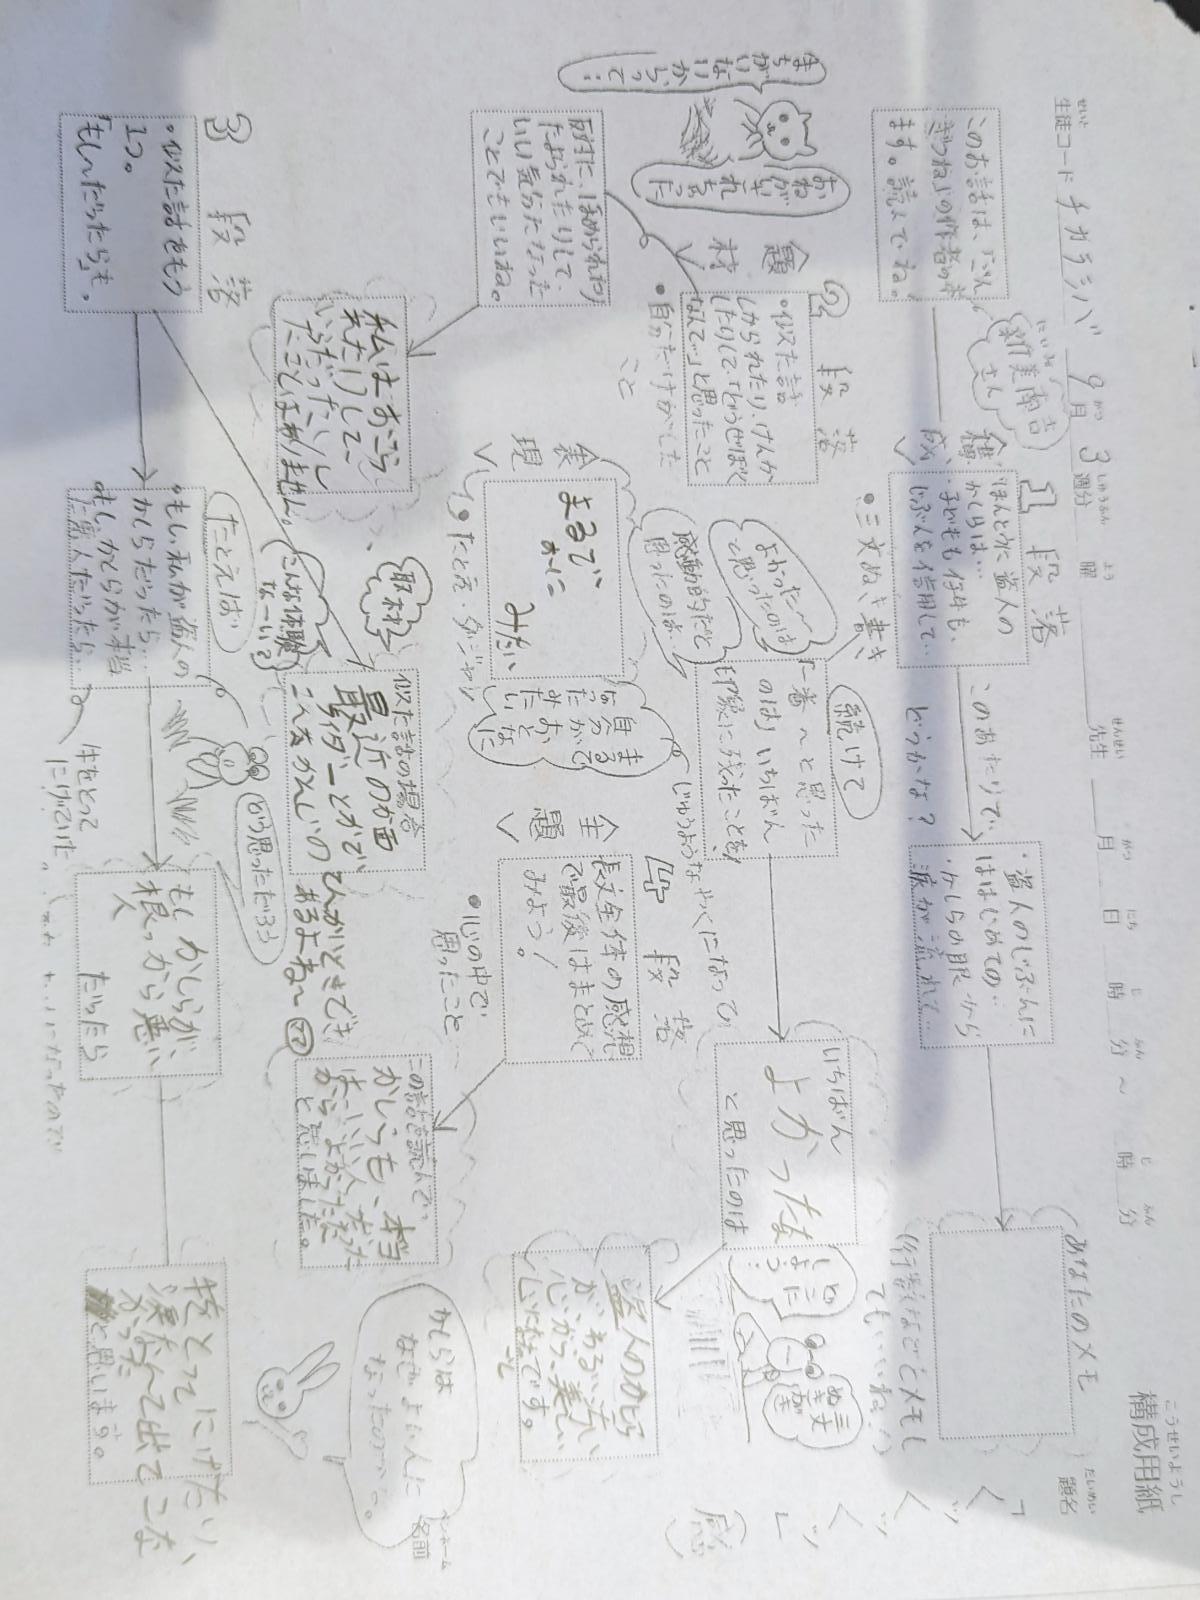 構成用紙
こうせいようし
生徒コード チカラシバ 9月 3週分 曜 先生 月 日 時 分 ～ 時 分
題名
だいめい
名前
ペンネーム
「くくッくッ」(感)
このお話は、「ごん
ぎつね」の作者の本
ます。読んでね。
新美南吉
にいみ
さん
1 段落
・ほんとうに盗人の
かしらは…
・子どもも仔牛も、
じぶんを信用して…
・三文ぬき書き
このあたりで…
どうかな？
・盗人のじぶんに
ははじめての…
・かしらの眼から
涙が流れて…
あなたのメモ
(行数などをメモし
てもいいね！)
続けて
「一番～と思った
のは」いちばん
印象に残ったことを
よかった～
と思ったのは
感動的だと
思ったのは…
いちばん
よかったな
と思ったのは
どこに
しよう…
三文
ぬき
書き
盗人のかしら
が、あるい汚い
心から、美しい
心になっ
たです。
2 段落
題材
・似た話
しかられたり、けんか
したりして、「どうせぼく
なんて」と思ったこと
・自分だけがした
こと
まちがいないからって…
おねがいされちゃった
反対に、ほめられたり
たよられたりして、
いい気分になった
ことでもいいね。
私はおこら
れたりして～
いらだったりし
たことはありません。
表現
・たとえ・ダジャレ
まるで
おに
みたい
まるで
自分が
おとなに
なった
みたい
じゅうようなやくになってい
取材
こんな体験
な～い？
似た話の場合
最近のが面
白いダーとかで
こんなかんじの
ひんがいときでき
あるよね～
3 段落
・似た話をもう
1つ。
「もし～だったら」も。
たとえば
・もし私が盗人の
かしらだったら…
・もし、かしらが本当
の盗人だったら…
どう思っただろう
牛をとって
にげていた。
もしかしらが、
根っから悪い
人
だったら
牛をとってにげたり、
涙なんて出てこな
かった
と思います。
4 段落
主題
長文全体の感想
で最後はまとめて
みよう！
・心の中で
思ったこと…
この話を読んで、
かしらも、本当
はいい人だった
から、よかったな
と思いました。
かしらは
なぜよい人に
なったのか。